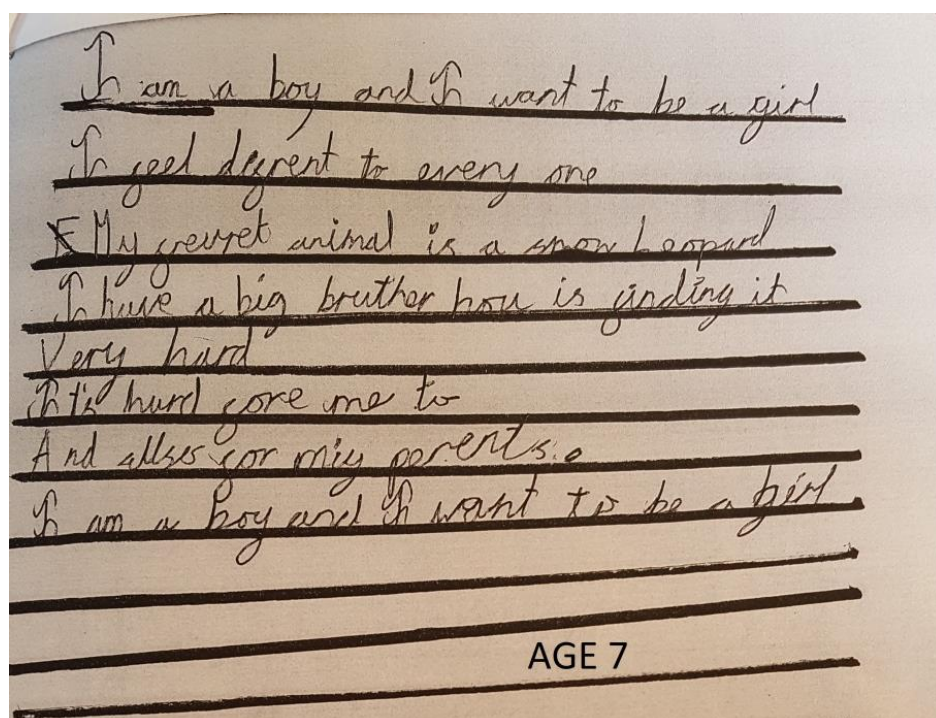 I am a boy and I want to be a girl
I feel difrent to every one
My fevret animal is a snow leopard
I have a big bruther hou is finding it
Very hard
It's hard fore me to
And allses for miy perents.
I am a boy and I want to be a girl
AGE 7